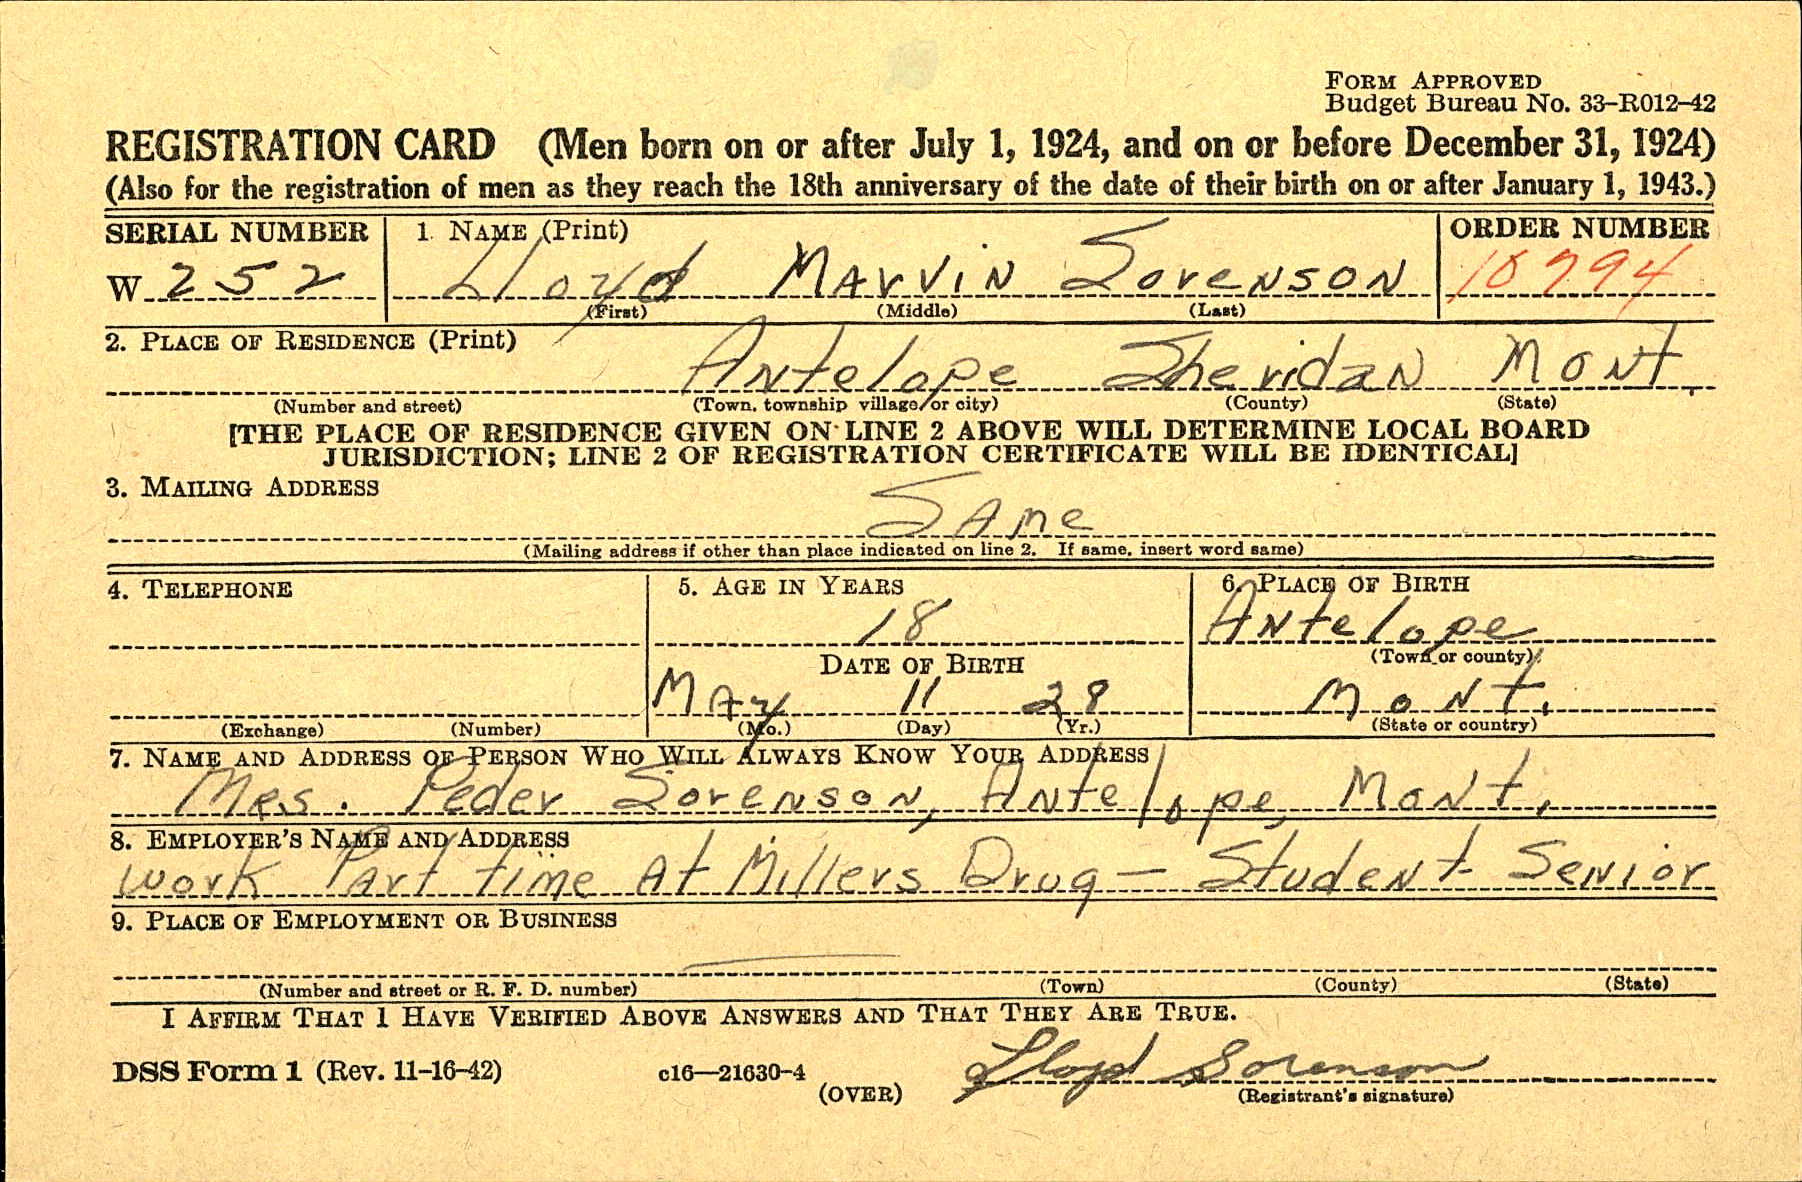 FORM APPROVED
Budget Bureau No. 33–R012–42
REGISTRATION CARD (Men born on or after July 1, 1924, and on or before December 31, 1924)
(Also for the registration of men as they reach the 18th anniversary of the date of their birth on or after January 1, 1943.)
SERIAL NUMBER 1. NAME (Print) ORDER NUMBER
W 252 Lloyd Marvin Sorenson 10994
(First) (Middle) (Last)
2. PLACE OF RESIDENCE (Print)
Antelope Sheridan Mont.
(Number and street) (Town, township village or city) (County) (State)
[THE PLACE OF RESIDENCE GIVEN ON LINE 2 ABOVE WILL DETERMINE LOCAL BOARD
JURISDICTION; LINE 2 OF REGISTRATION CERTIFICATE WILL BE IDENTICAL]
3. MAILING ADDRESS
Same
(Mailing address if other than place indicated on line 2. If same, insert word same)
4. TELEPHONE 5. AGE IN YEARS 6. PLACE OF BIRTH
18 Antelope
DATE OF BIRTH (Town or county)
May 11 28 Mont.
(Exchange) (Number) (Mo.) (Day) (Yr.) (State or country)
7. NAME AND ADDRESS OF PERSON WHO WILL ALWAYS KNOW YOUR ADDRESS
Mrs. Peder Sorenson, Antelope, Mont.
8. EMPLOYER'S NAME AND ADDRESS
work Part time at Millers Drug – Student – Senior
9. PLACE OF EMPLOYMENT OR BUSINESS
(Number and street or R. F. D. number) (Town) (County) (State)
I AFFIRM THAT I HAVE VERIFIED ABOVE ANSWERS AND THAT THEY ARE TRUE.
DSS Form 1 (Rev. 11-16-42) c16—21630-4 Lloyd Sorenson
(OVER) (Registrant's signature)